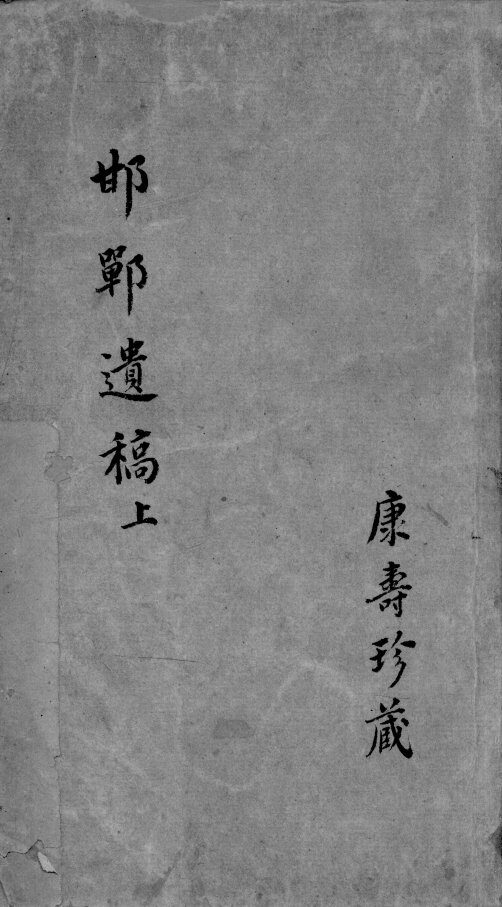 康壽珍蔵
邯鄲遺稿上